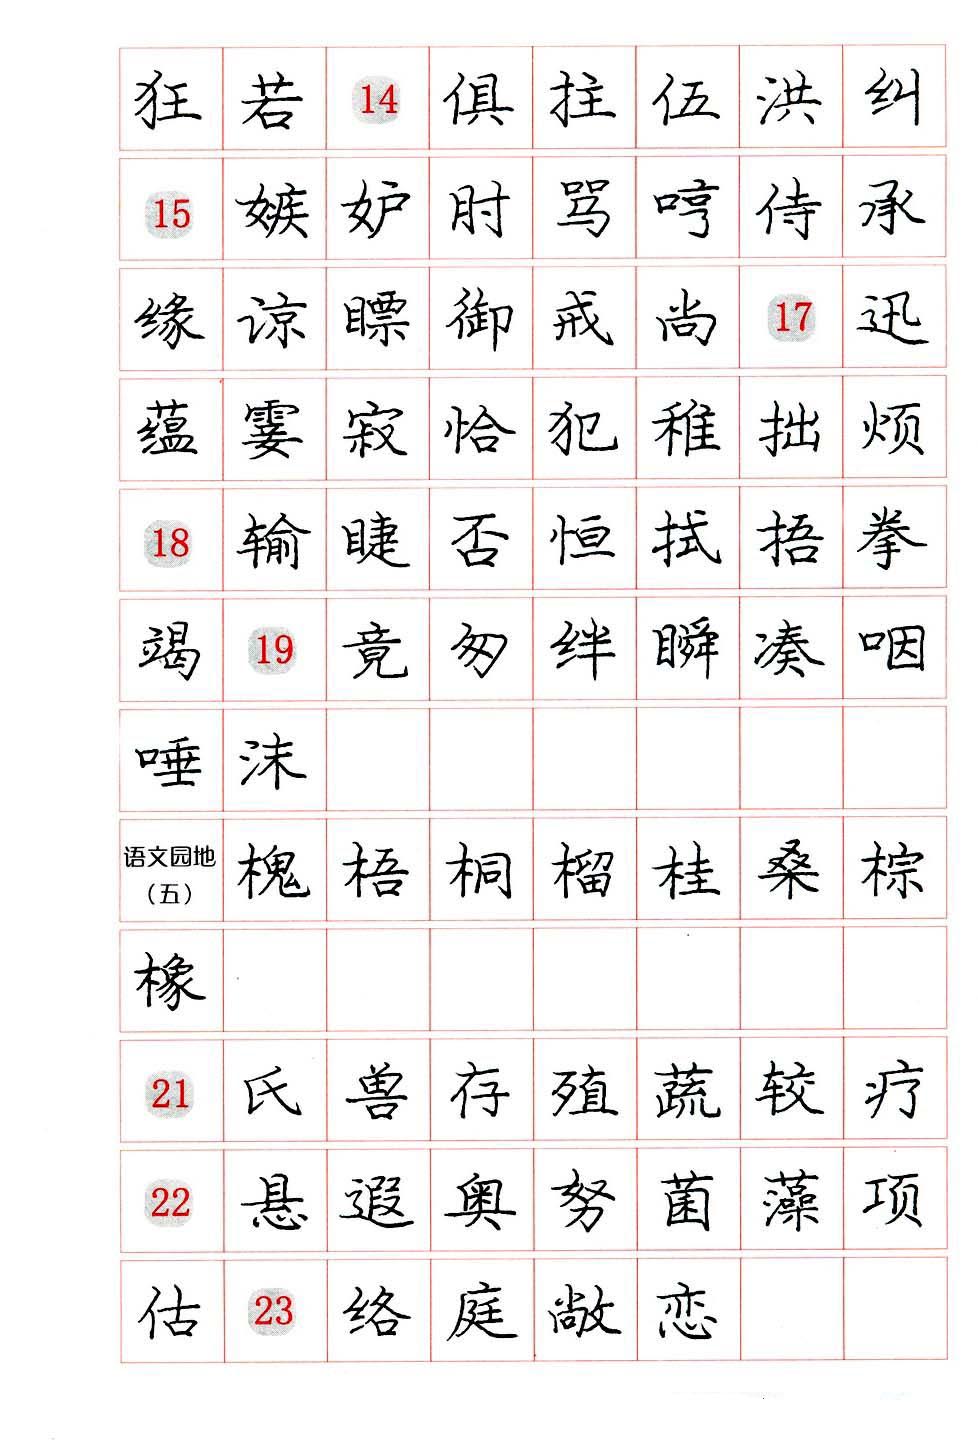 狂 若 14 俱 拄 伍 洪 纠
15 嫉 妒 肘 骂 哼 侍 承
缘 谅 瞟 御 戒 尚 17 迅
蕴 霎 寂 恰 犯 稚 拙 烦
18 输 睫 否 恒 拭 捂 拳
竭 19 竟 匆 绊 瞬 凑 咽
唾 沫
语文园地（五） 槐 梧 桐 榴 桂 桑 棕
橡
21 氏 兽 存 殖 蔬 较 疗
22 悬 遐 奥 努 菌 藻 项
估 23 络 庭 敞 恋